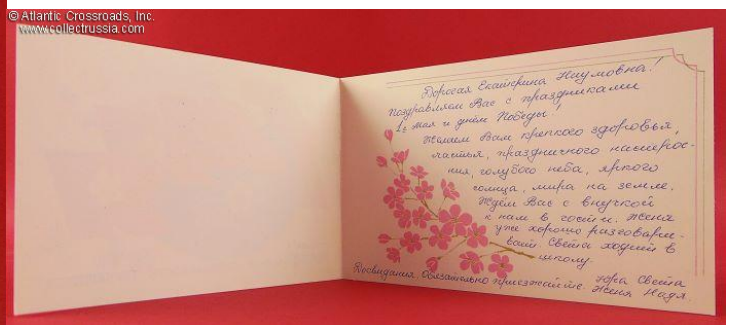 © Atlantic Crossroads, Inc.
www.collectrussia.com
Дорогая Екатерина Наумовна!
Поздравляем Вас с праздниками
1 мая и днём Победы!
Желаем Вам крепкого здоровья,
счастья, праздничного настрое-
ния, голубого неба, яркого
солнца, мира на земле.
Ждём Вас с внучкой
к нам в гости. Женя
уже хорошо разговари-
вает Света ходит в
школу.
Досвидания. Обязательно приезжайте. Юра Света
Женя Надя.